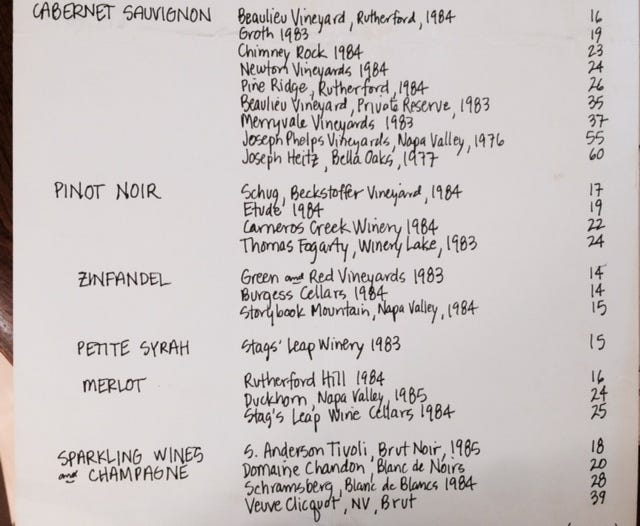 CABERNET SAUVIGNON Beaulieu Vineyard, Rutherford, 1984 16
Groth 1983 19
Chimney Rock 1984 23
Newton Vineyards 1984 24
Pine Ridge, Rutherford, 1984 26
Beaulieu Vineyard, Private Reserve, 1983 35
Merryvale Vineyards 1983 37
Joseph Phelps Vineyards, Napa Valley, 1976 55
Joseph Heitz, Bella Oaks, 1977 60
PINOT NOIR Schug, Beckstoffer Vineyard, 1984 17
Etude 1984 19
Carneros Creek Winery 1984 22
Thomas Fogarty, Winery Lake, 1983 24
ZINFANDEL Green and Red Vineyards 1983 14
Burgess Cellars 1984 14
Storybook Mountain, Napa Valley, 1984 15
PETITE SYRAH Stags' Leap Winery 1983 15
MERLOT Rutherford Hill 1984 16
Duckhorn, Napa Valley, 1985 24
Stag's Leap Wine Cellars 1984 25
SPARKLING WINES S. Anderson Tivoli, Brut Noir, 1985 18
and CHAMPAGNE Domaine Chandon Blanc de Noirs 20
Schramsberg, Blanc de Blancs 1984 28
Veuve Clicquot, NV, Brut 39